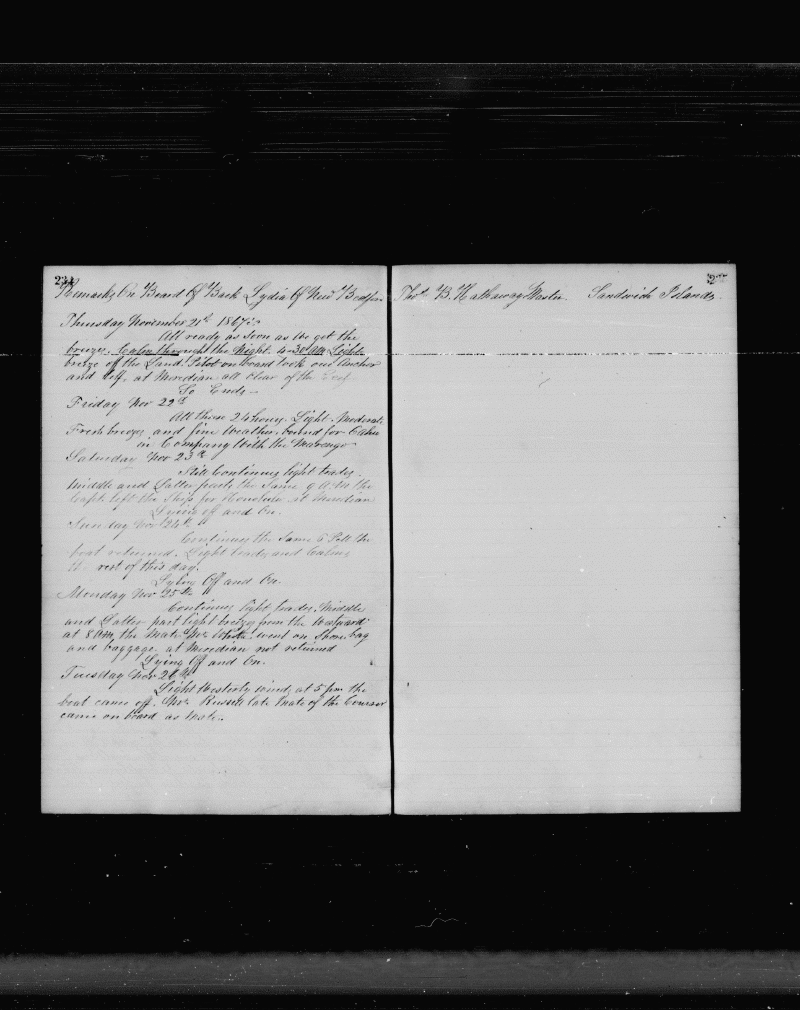 234
Remarks On Board Of Bark Lydia Of New Bedford
Thos. B. Hathaway Master. Sandwich Islands.
Thursday November 21st 1867
All ready as Soon as we get the
breeze. Calm through the Night. 4-30 AM Light
breeze off the Land. Pilot on board took our Anchor
and left, at Meridian all Clear of the Reef
So Ends
Friday Nov 22d
All these 24 hours. Light Moderate
Fresh breezes and fine Weather. bound for Oahu
in Company With the Marengo
Saturday Nov 23d
Still Continues light trades.
Middle and Latter parts the Same 9 A.M. the
Capt. left the Ship for Honolulu at Meridian
Lying off and On.
Sunday Nov 24th
Continues the Same 6 P.M. the
boat returned. Light trades and Calms
the rest of this day.
Lying Off and On.
Monday Nov 25th
Continues light trades. Middle
and Latter part light breezes from the Westward
at 8 AM the Mate Mr. White went on Shore bag
and baggage. at Meridian not returned
Lying Off and On.
Tuesday Nov 26th
Light Westerly winds at 5 pm the
boat came off. Mr. Russell late Mate of the Courser
came on board as Mate.